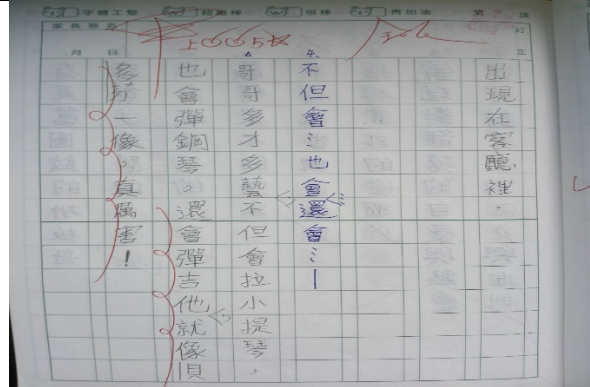 字體工整 超氣棒 很棒 再加油 第
家長簽名
月 日
出現在客廳裡。
5.不但會…也會還會…
哥哥多才多藝不但會拉小提琴,
也會彈鋼琴,還會彈吉他就像
多芬一像,真厲害!